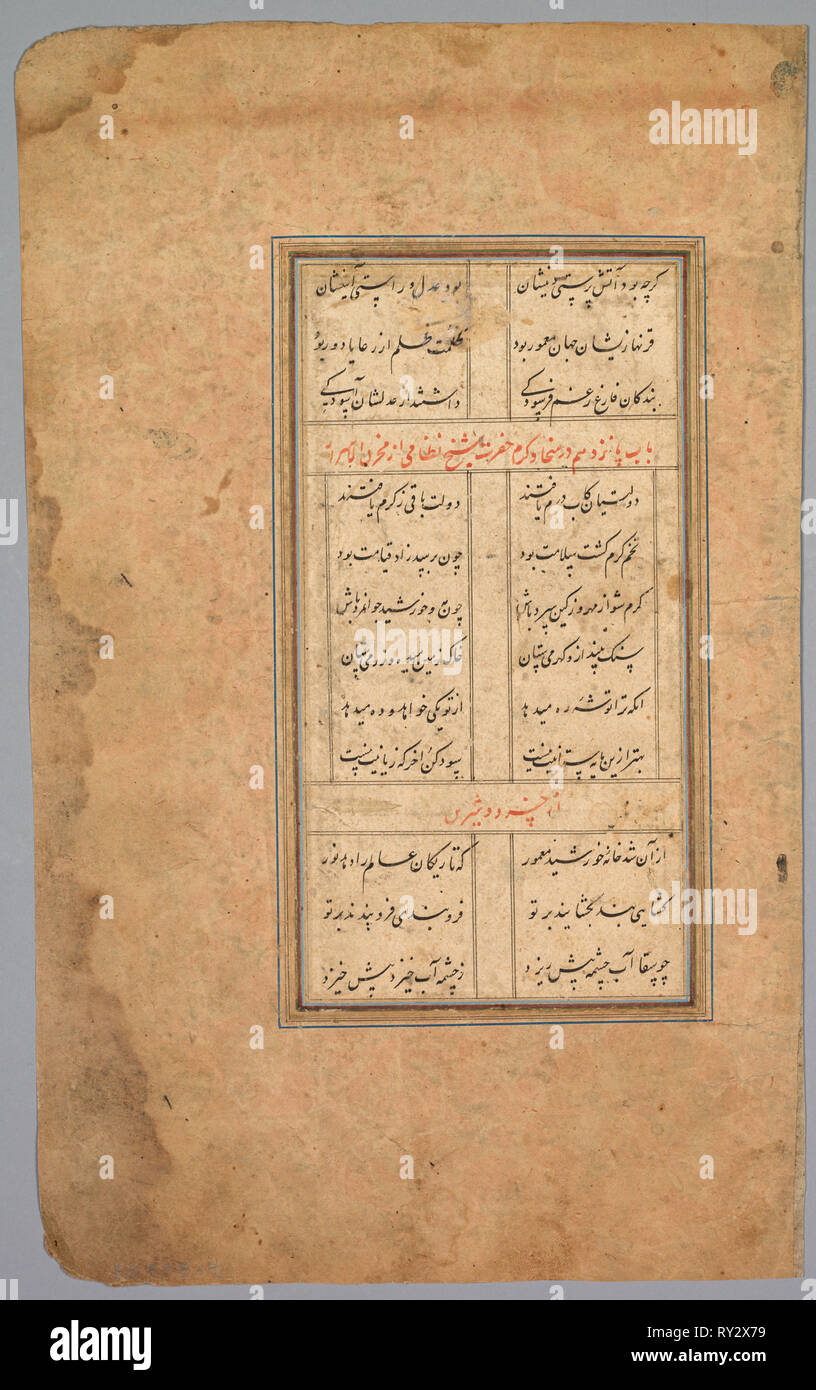 کرچه بود آتش پرستی دینشان بود عدل و راستی آیینشان
قرنها زیشان جهان معمور بود ظلمت ظلم از رعایا دور بود
بندکان فارغ زغم فرسودکی داشتند از عدلشان آسودکی
باب پانزدهم در سخا و کرم حضرت شیخ نظامی از مخزن الاسرار
دولتیان کاب و درم یافتند دولت باقی زکرم یافتند
تخم کرم کشت سلامت بود چون برسد زاد قیامت بود
کرم شو از مهر و زکین سرد باش چون مه و خورشید جوانمرد باش
سنک بینداز و کهر می ستان خاک زمین میده و زر می ستان
انکه ترا توشه ره میدهد از تو یکی خواهد و ده میدهد
بهتر ازین مایه ستانیت نیست سود کن آخر که زیانیت نیست
از خسرو و شیرین
از آن شد خانه خورشید معمور که تاریکان عالم را دهد نور
کشایی بند بکشایند بر تو فرو بندی فرو بندند بر تو
چو سقا آب چشمه پیش ریزد زچشمه آب خیزد پیش خیزد
alamy
a
alamy stock photo
RY2X79
www.alamy.com